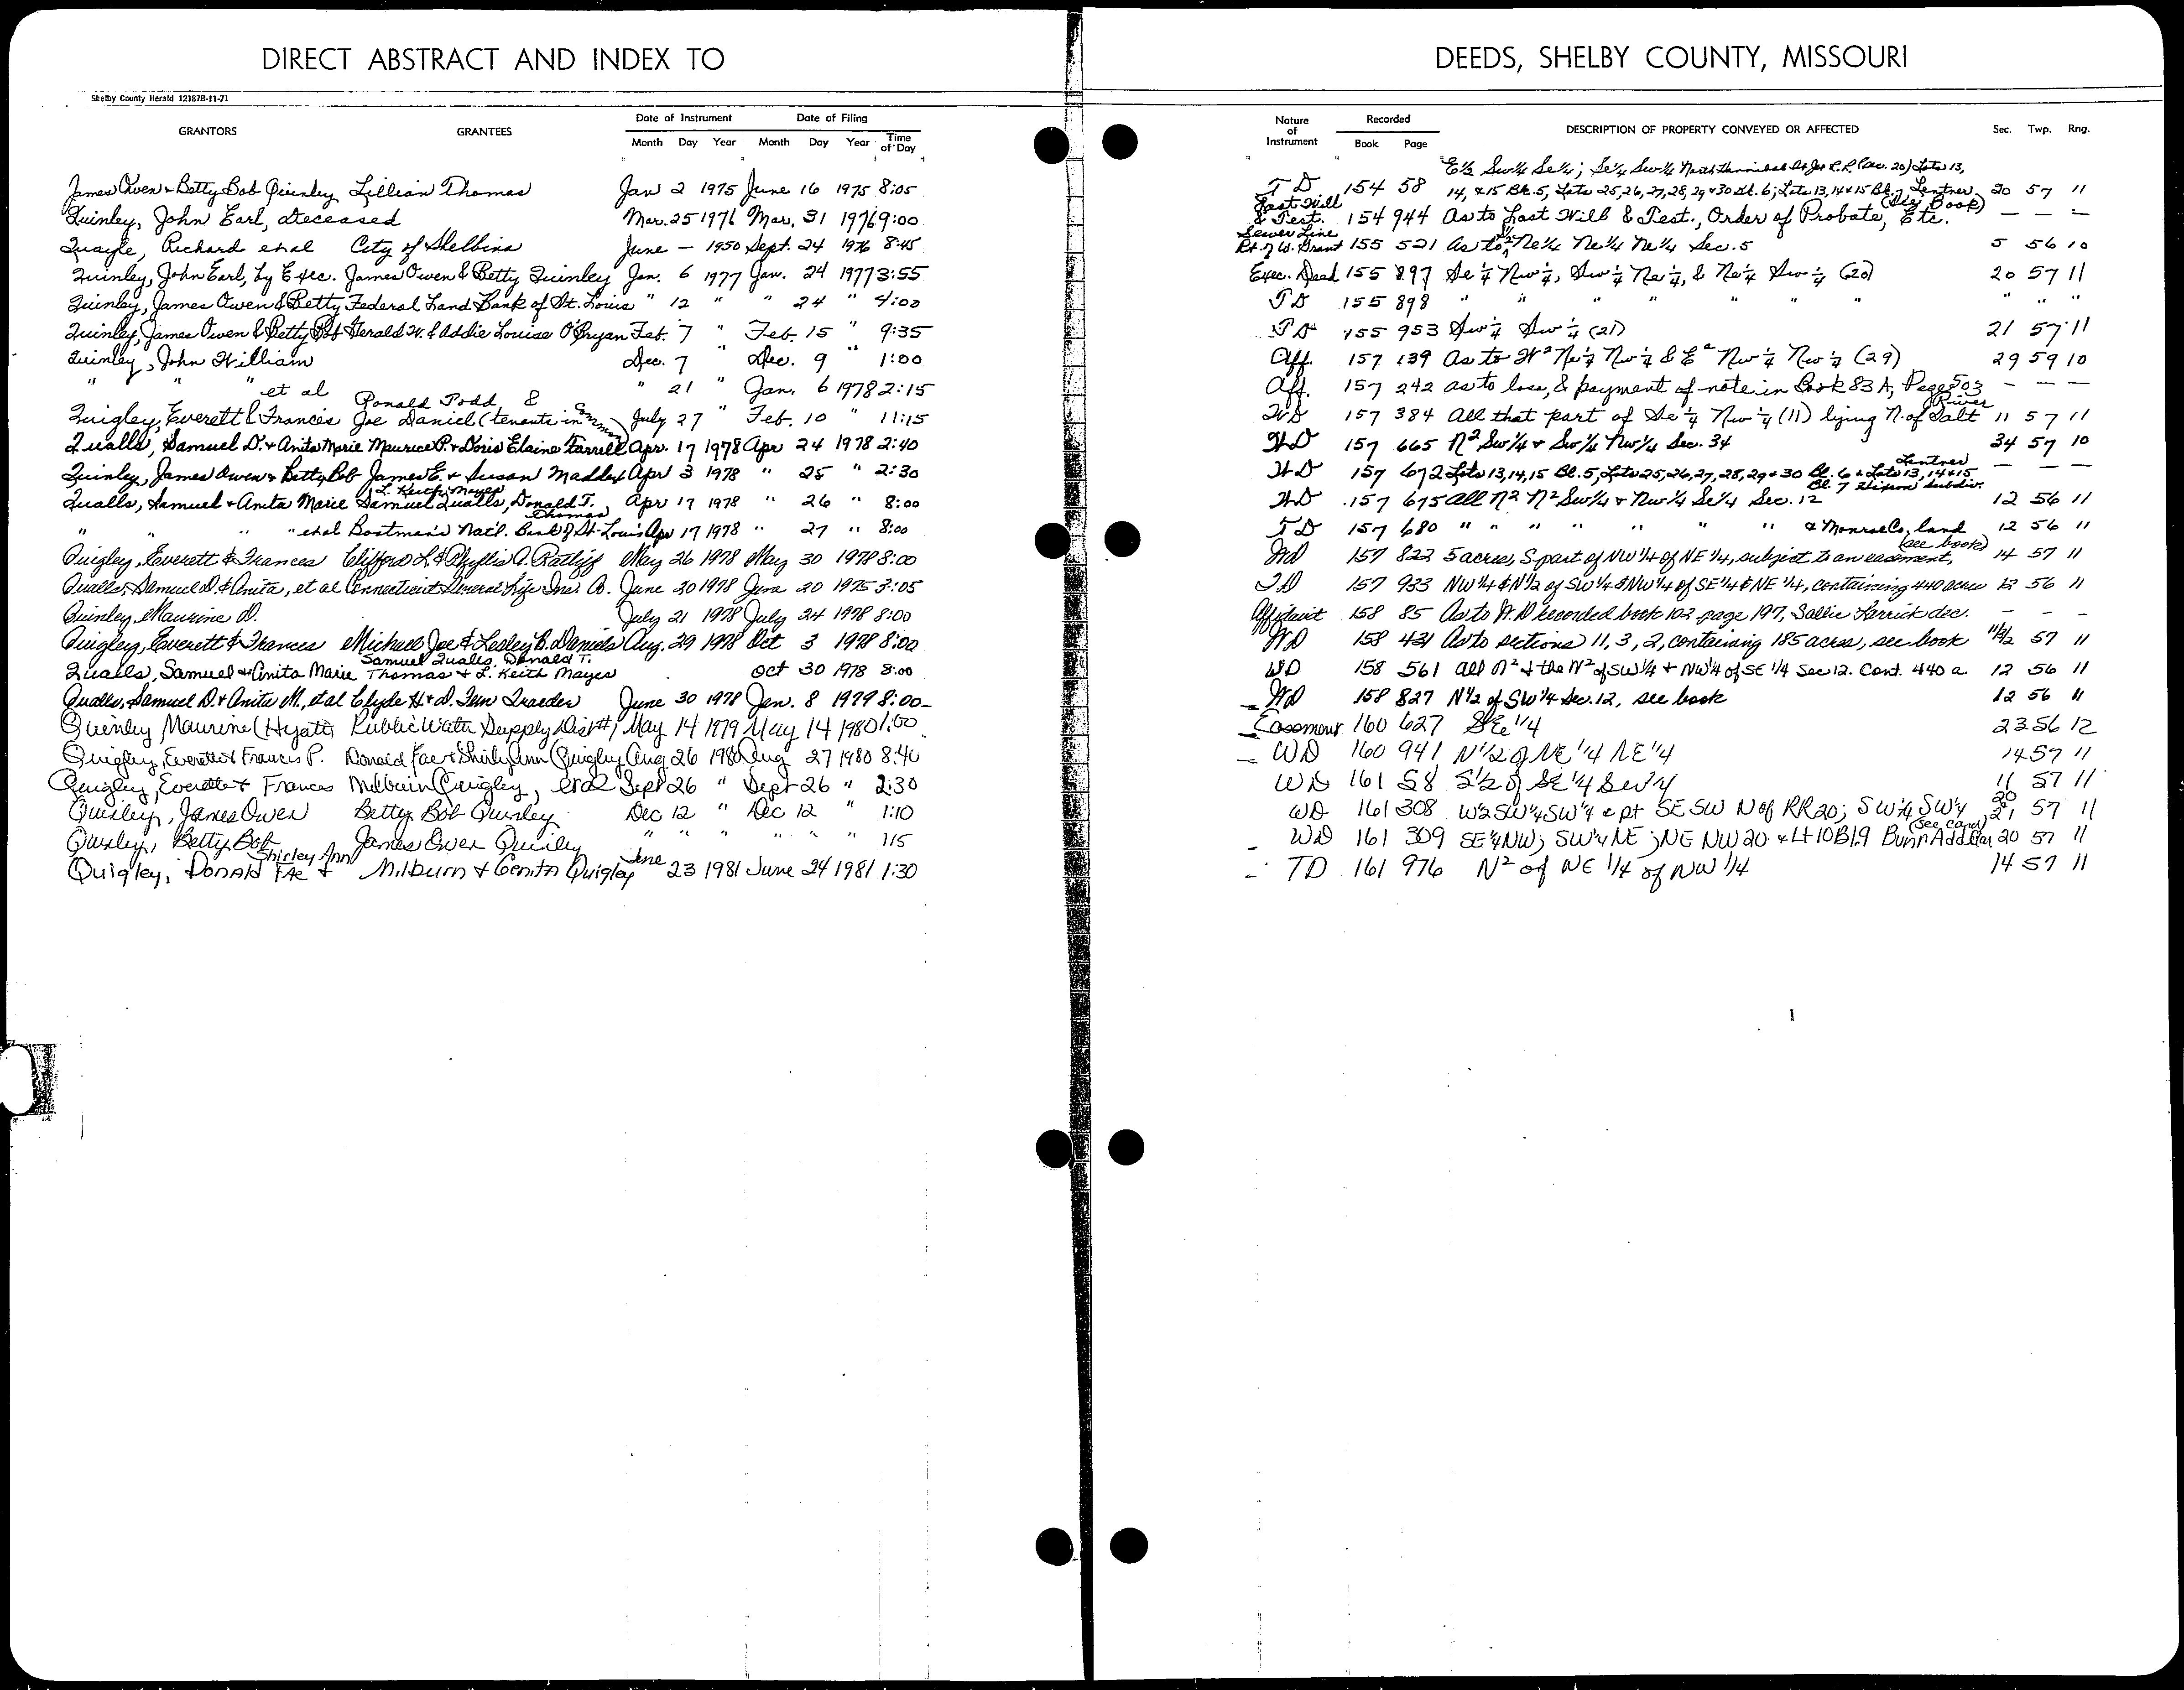 DIRECT ABSTRACT AND INDEX TO
DEEDS, SHELBY COUNTY, MISSOURI
Shelby County Herald 12187B-11-71
GRANTORS GRANTEES Date of Instrument Date of Filing
Month Day Year Month Day Year Time of Day
Nature of Instrument Recorded Book Page DESCRIPTION OF PROPERTY CONVEYED OR AFFECTED Sec. Twp. Rng.
E½ Sw¼ Se¼; Se¼ Sw¼ North Hannibal & St Joe R.R. (Sec. 20) Lots 13,
James Owen & Betty Bob Quinley Lillian Thomas Jan 2 1975 June 16 1975 8:05 TD 154 58 14, & 15 Bk. 5, Lots 25, 26, 27, 28, 29 & 30 Bk. 6; Lots 13, 14 & 15 Bk. 7, Lentner 20 57 11
(See Book)
Quinley, John Earl, deceased Mar. 25 1976 Mar. 31 1976 9:00 Last Will & Test. 154 944 As to Last Will & Test., Order of Probate, Etc. — — —
Quayle, Richard et al City of Shelbina June — 1950 Sept. 24 1976 8:45 Sewer Line Rt. of W. Grant 155 521 As to Ne¼ Ne¼ Ne¼ Sec. 5 5 56 10
Quinley, John Earl, by Exec. James Owen & Betty Quinley Jan. 6 1977 Jan. 24 1977 3:55 Exec. Deed 155 897 Se ¼ Nw ¼, Sw ¼ Ne ¼, & Ne ¼ Sw ¼ (20) 20 57 11
Quinley, James Owen & Betty Federal Land Bank of St. Louis " 12 " " 24 " 4:00 TD 155 898 " " " " " " " " " "
Quinley, James Owen & Betty Bob Herald W. & Addie Louise O'Bryan Feb. 7 " Feb. 15 " 9:35 TD 155 953 Sw ¼ Sw ¼ (21) 21 57 11
Quinley, John William Dec. 7 " Dec. 9 " 1:00 Aff. 157 139 As to W² Ne ¼ Nw ¼ & E² Nw ¼ Nw ¼ (29) 29 59 10
" " " et al " 21 " Jan. 6 1978 2:15 Aff. 157 242 as to loss, & payment of note in Book 83 A, Page 503 — — —
Quigley, Everett & Frances Ronald Todd & Joe Daniel (tenants in common) July 27 " Feb. 10 " 11:15 WD 157 384 All that part of Se ¼ Nw ¼ (11) lying N. of Salt River 11 57 11
Qualls, Samuel D. & Anita Marie Maurice P. & Doris Elaine Farrell Apr. 17 1978 Apr 24 1978 2:40 WD 157 665 N² Sw¼ & Sw¼ Nw¼ Sec. 34 34 57 10
Quinley, James Owen & Betty Bob James E. & Susan Maddox Apr 3 1978 " 25 " 2:30 WD 157 672 Lots 13, 14, 15 Bl. 5, Lots 25, 26, 27, 28, 29 & 30 Bl. 6 & Lots 13, 14 & 15 Bl. 7 Hixson Subdiv. Lentner — — —
Qualls, Samuel & Anita Marie Samuel Qualls, Donald T. Thomas L. Keith Mayes Apr 17 1978 " 26 " 8:00 WD 157 675 All N² N² Sw¼ & Nw¼ Se¼ Sec. 12 12 56 11
" " " et al Boatman's Nat'l. Bank of St. Louis Apr 17 1978 " 27 " 8:00 TD 157 680 " " " " " " " & Monroe Co. land 12 56 11
(see book)
Quigley, Everett & Frances Clifford L. & Phyllis A. Ratliff May 26 1978 May 30 1978 8:00 WD 157 822 5 acres, S part of NW ¼ of NE ¼, subject to an easement, 14 57 11
Qualls, Samuel D. & Anita, et al Connecticut General Life Ins. Co. June 20 1978 June 20 1975 3:05 TD 157 933 NW ¼ & N½ of SW ¼ & NW ¼ of SE ¼ & NE ¼, containing 440 acres 12 56 11
Quinley, Maurine D. July 21 1978 July 24 1978 8:00 Affidavit 158 85 As to W.D recorded book 102 page 197, Sallie Herrick dec. - - -
Quigley, Everett & Frances Michael Joe & Lesley B. Daniels Aug. 29 1978 Oct 3 1978 8:00 WD 158 431 As to sections 11, 3, 2, containing 185 acres, see book 11/3/2 57 11
Qualls, Samuel & Anita Marie Samuel Qualls, Donald T. Thomas & L. Keith Mayes Oct 30 1978 8:00 WD 158 561 All N² & the N² of SW ¼ & NW ¼ of SE ¼ Sec 12. Cont. 440 a. 12 56 11
Qualls, Samuel D. & Anita M., et al Clyde H. & D. Fern Traeder June 30 1978 Jan. 8 1979 8:00 WD 158 827 N½ of SW ¼ Sec. 12, see book 12 56 11
Quinley Maurine (Hyatt) Public Water Supply Dist #1 May 14 1979 May 14 1980 1:00 Easement 160 627 SE ¼ 23 56 12
Quigley, Everett & Francis P. Donald Fae & Shirley Ann Quigley Aug 26 1980 Aug 27 1980 8:40 WD 160 941 N½ of NE ¼ NE ¼ 14 57 11
Quigley, Everett & Frances Milburn Quigley, et al Sept 26 " Sept 26 " 2:30 WD 161 58 S½ of SE ¼ SW ¼ 11 57 11
Quinley, James Owen Betty Bob Quinley Dec 12 " Dec 12 " 1:10 WD 161 308 W½ SW¼ SW¼ & pt SE SW N of RR 20; SW ¼ SW ¼ 20 21 57 11
(See card)
Quinley, Betty Bob James Owen Quinley " " " " " " 115 WD 161 309 SE ¼ NW; SW ¼ NE; NE NW 20 & Lt 10 Bl. 9 20 57 11
Quigley, Donald Fae & Shirley Ann Milburn & Genita Quigley June 23 1981 June 24 1981 1:30 TD 161 976 N² of NE ¼ of NW ¼ 14 57 11